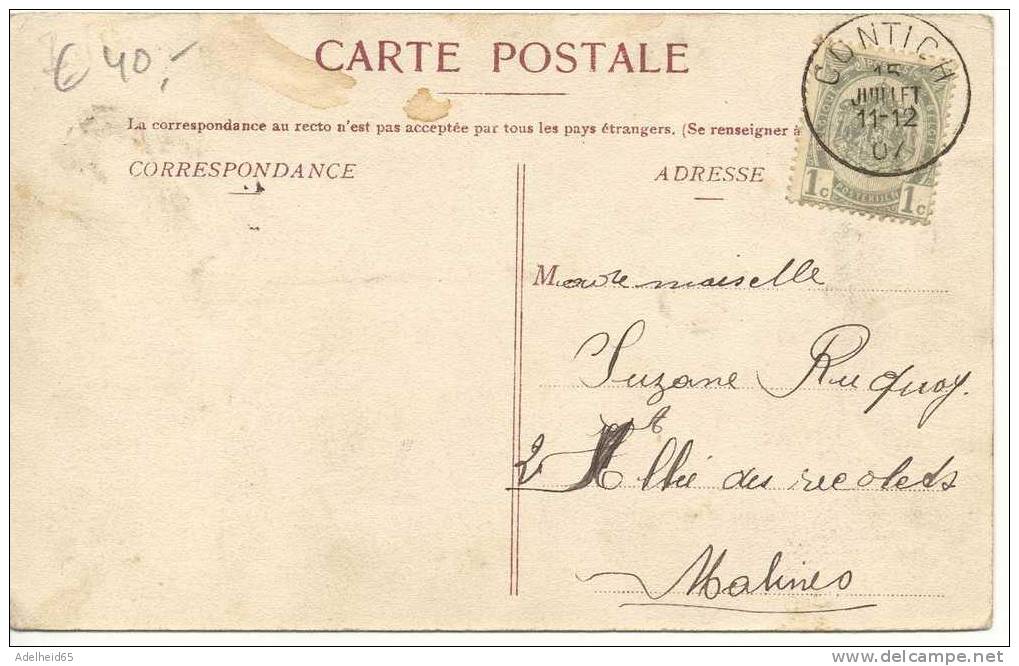 € 40,-
CARTE POSTALE
CONTICH
15
JUILLET
11-12
07
La correspondance au recto n'est pas acceptée par tous les pays étrangers. (Se renseigner à
CORRESPONDANCE
ADRESSE
1c 1c
POSTERIJEN
Mademoiselle
Suzane Ruquoy.
2 Allée des recolets
Malines
Adelheid65
delcampe.net